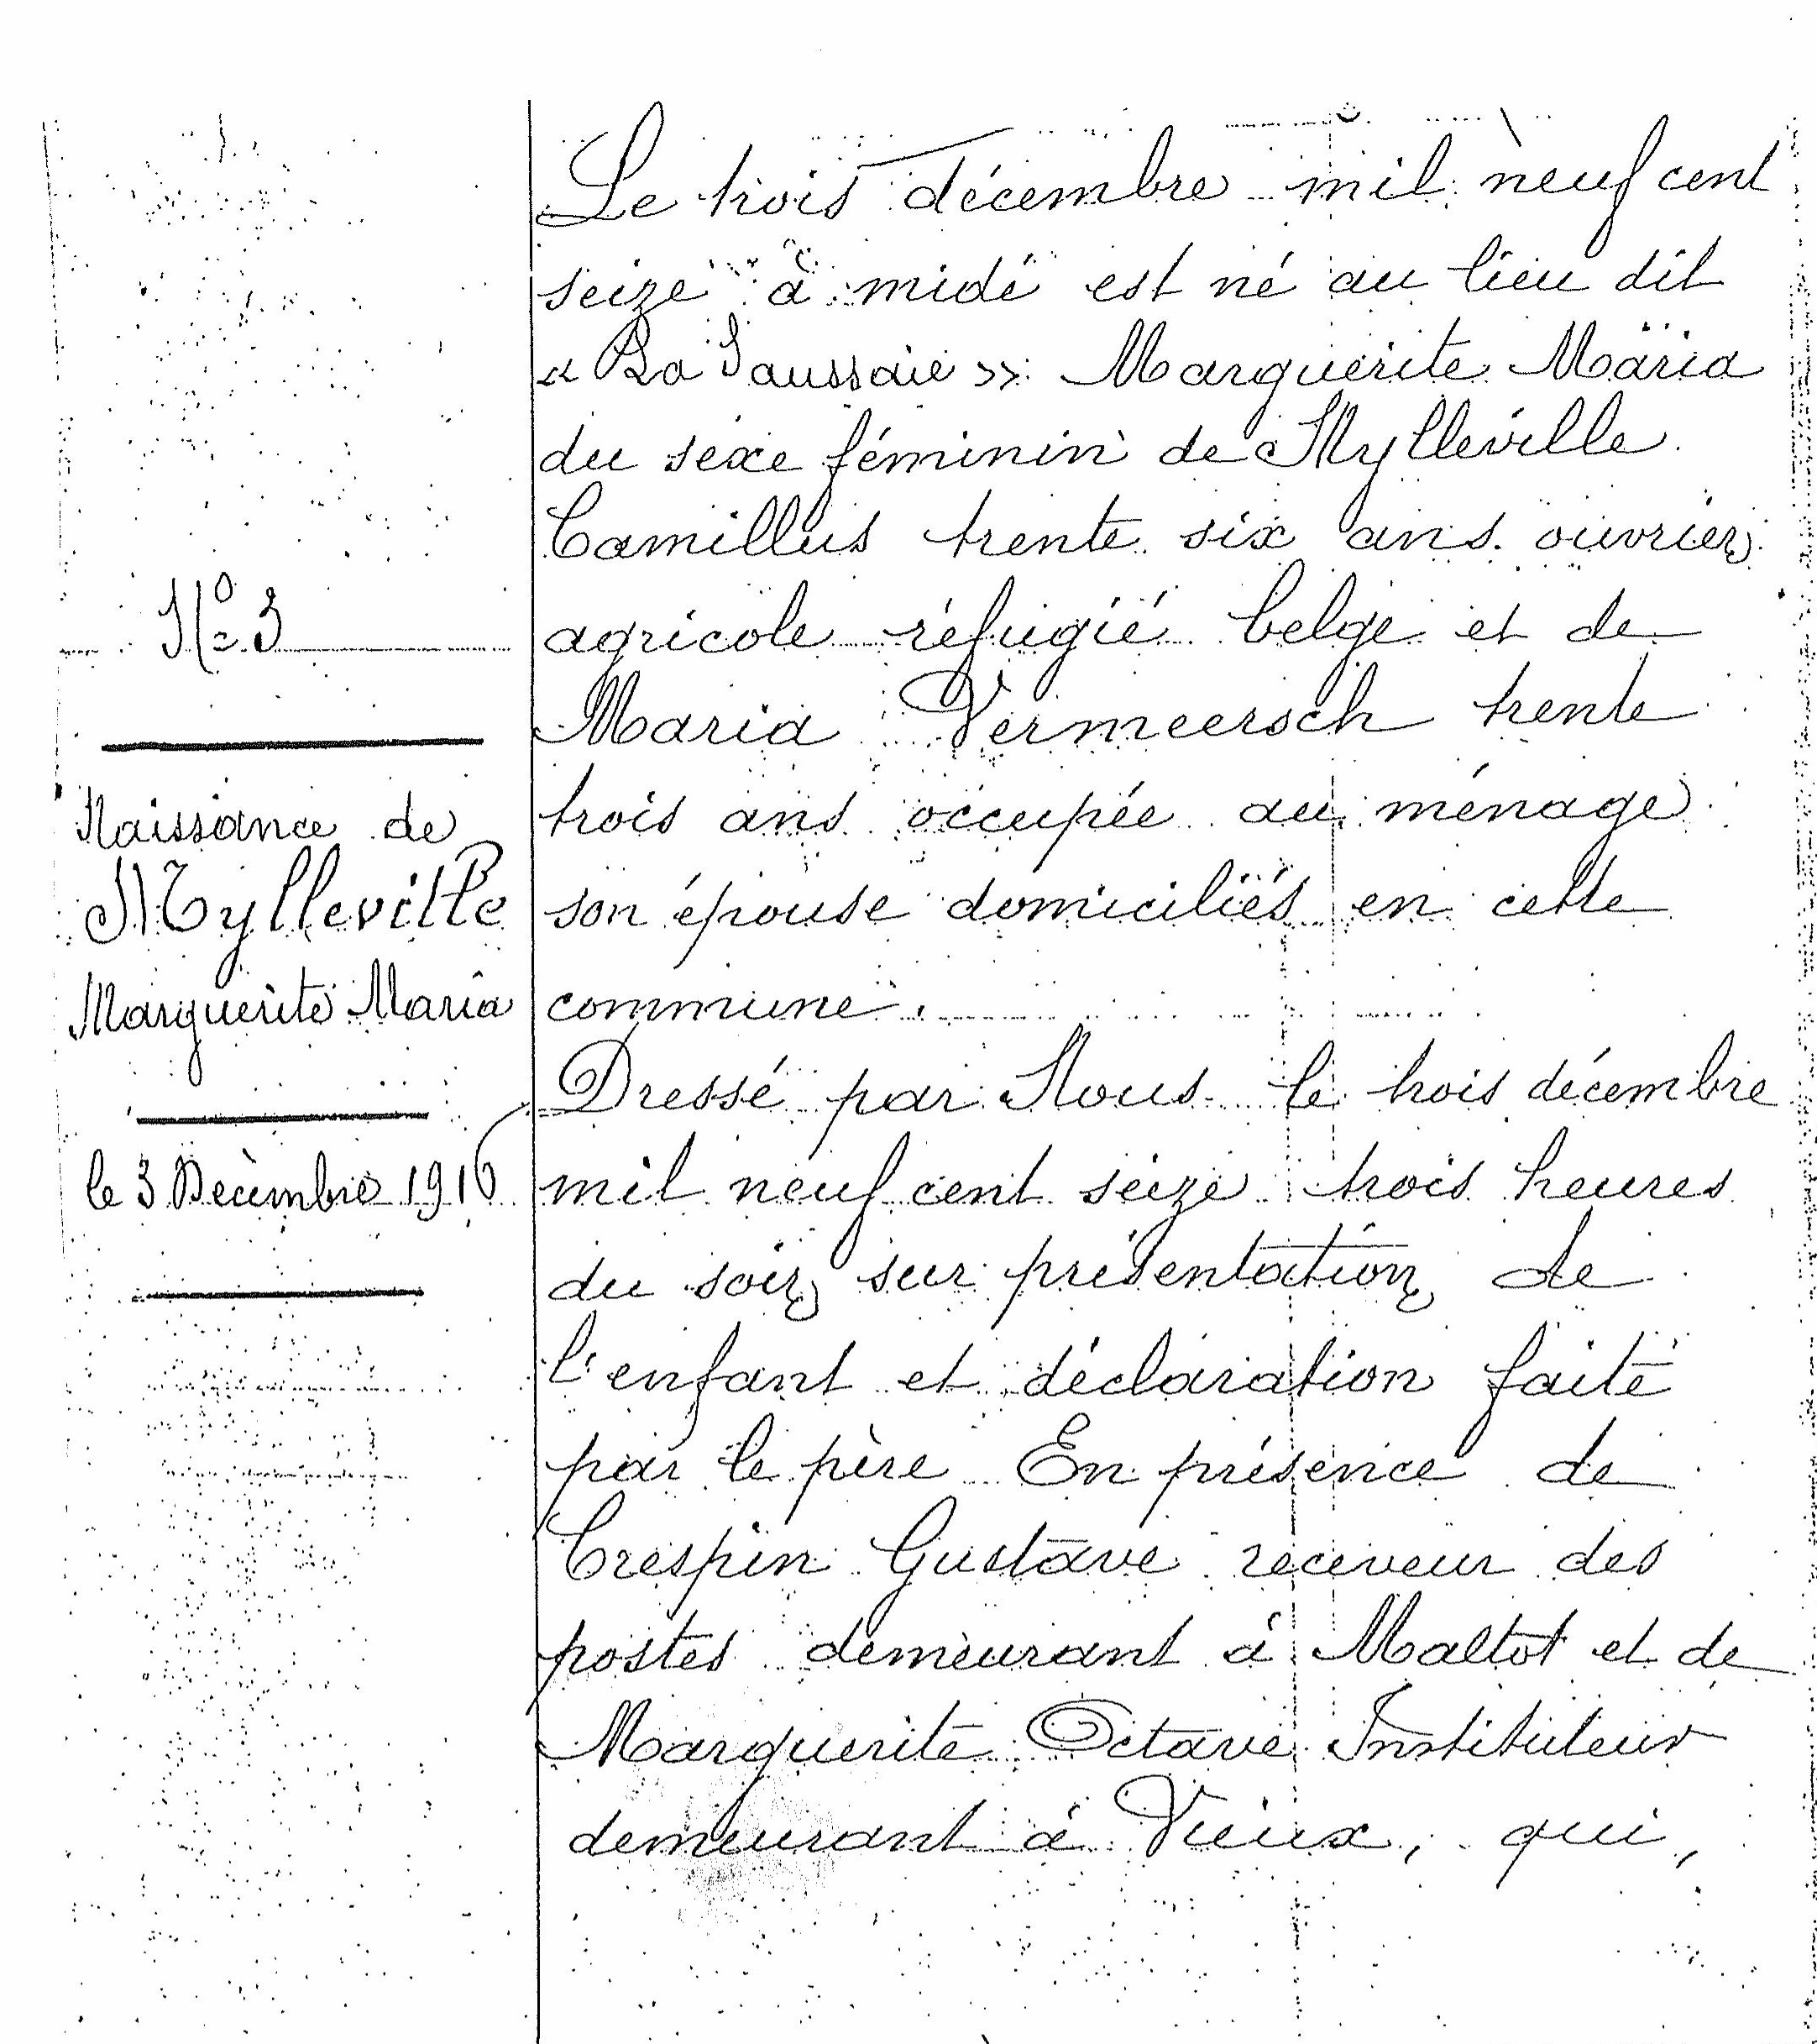 N° 3
Naissance de
Mylleville
Marguerite Maria
le 3 Décembre 1916
Le trois décembre mil neuf cent
seize à midi est né au lieu dit
« La Saussaie » Marguerite Maria
du sexe féminin de Mylleville
Camillus trente six ans ouvrier
agricole réfugié belge et de
Maria Vermeersch trente
trois ans occupée au ménage
son épouse domiciliés en cette
commune.
Dressé par Nous le trois décembre
mil neuf cent seize trois heures
du soir, sur présentation de
l'enfant et déclaration faite
par le père En présence de
Crespin Gustave receveur des
postes demeurant à Maltot et de
Marguerite Octave Instituteur
demeurant à Vieux, qui,